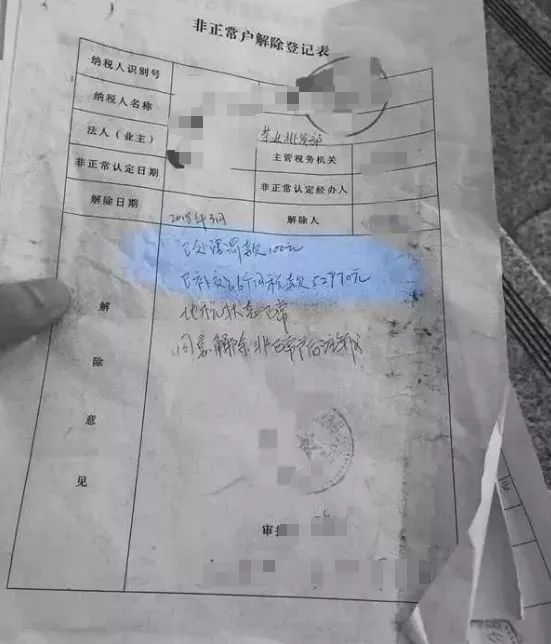 非正常户解除登记表
纳税人识别号
纳税人名称
法人（业主） 茶业批发部 主管税务机关
非正常认定日期 非正常认定经办人
解除日期 2018年3月 解除人
解除意见
已处理罚款100元
已补交 个月税款52970元
他税状态正常
同意解除非正常户
审批